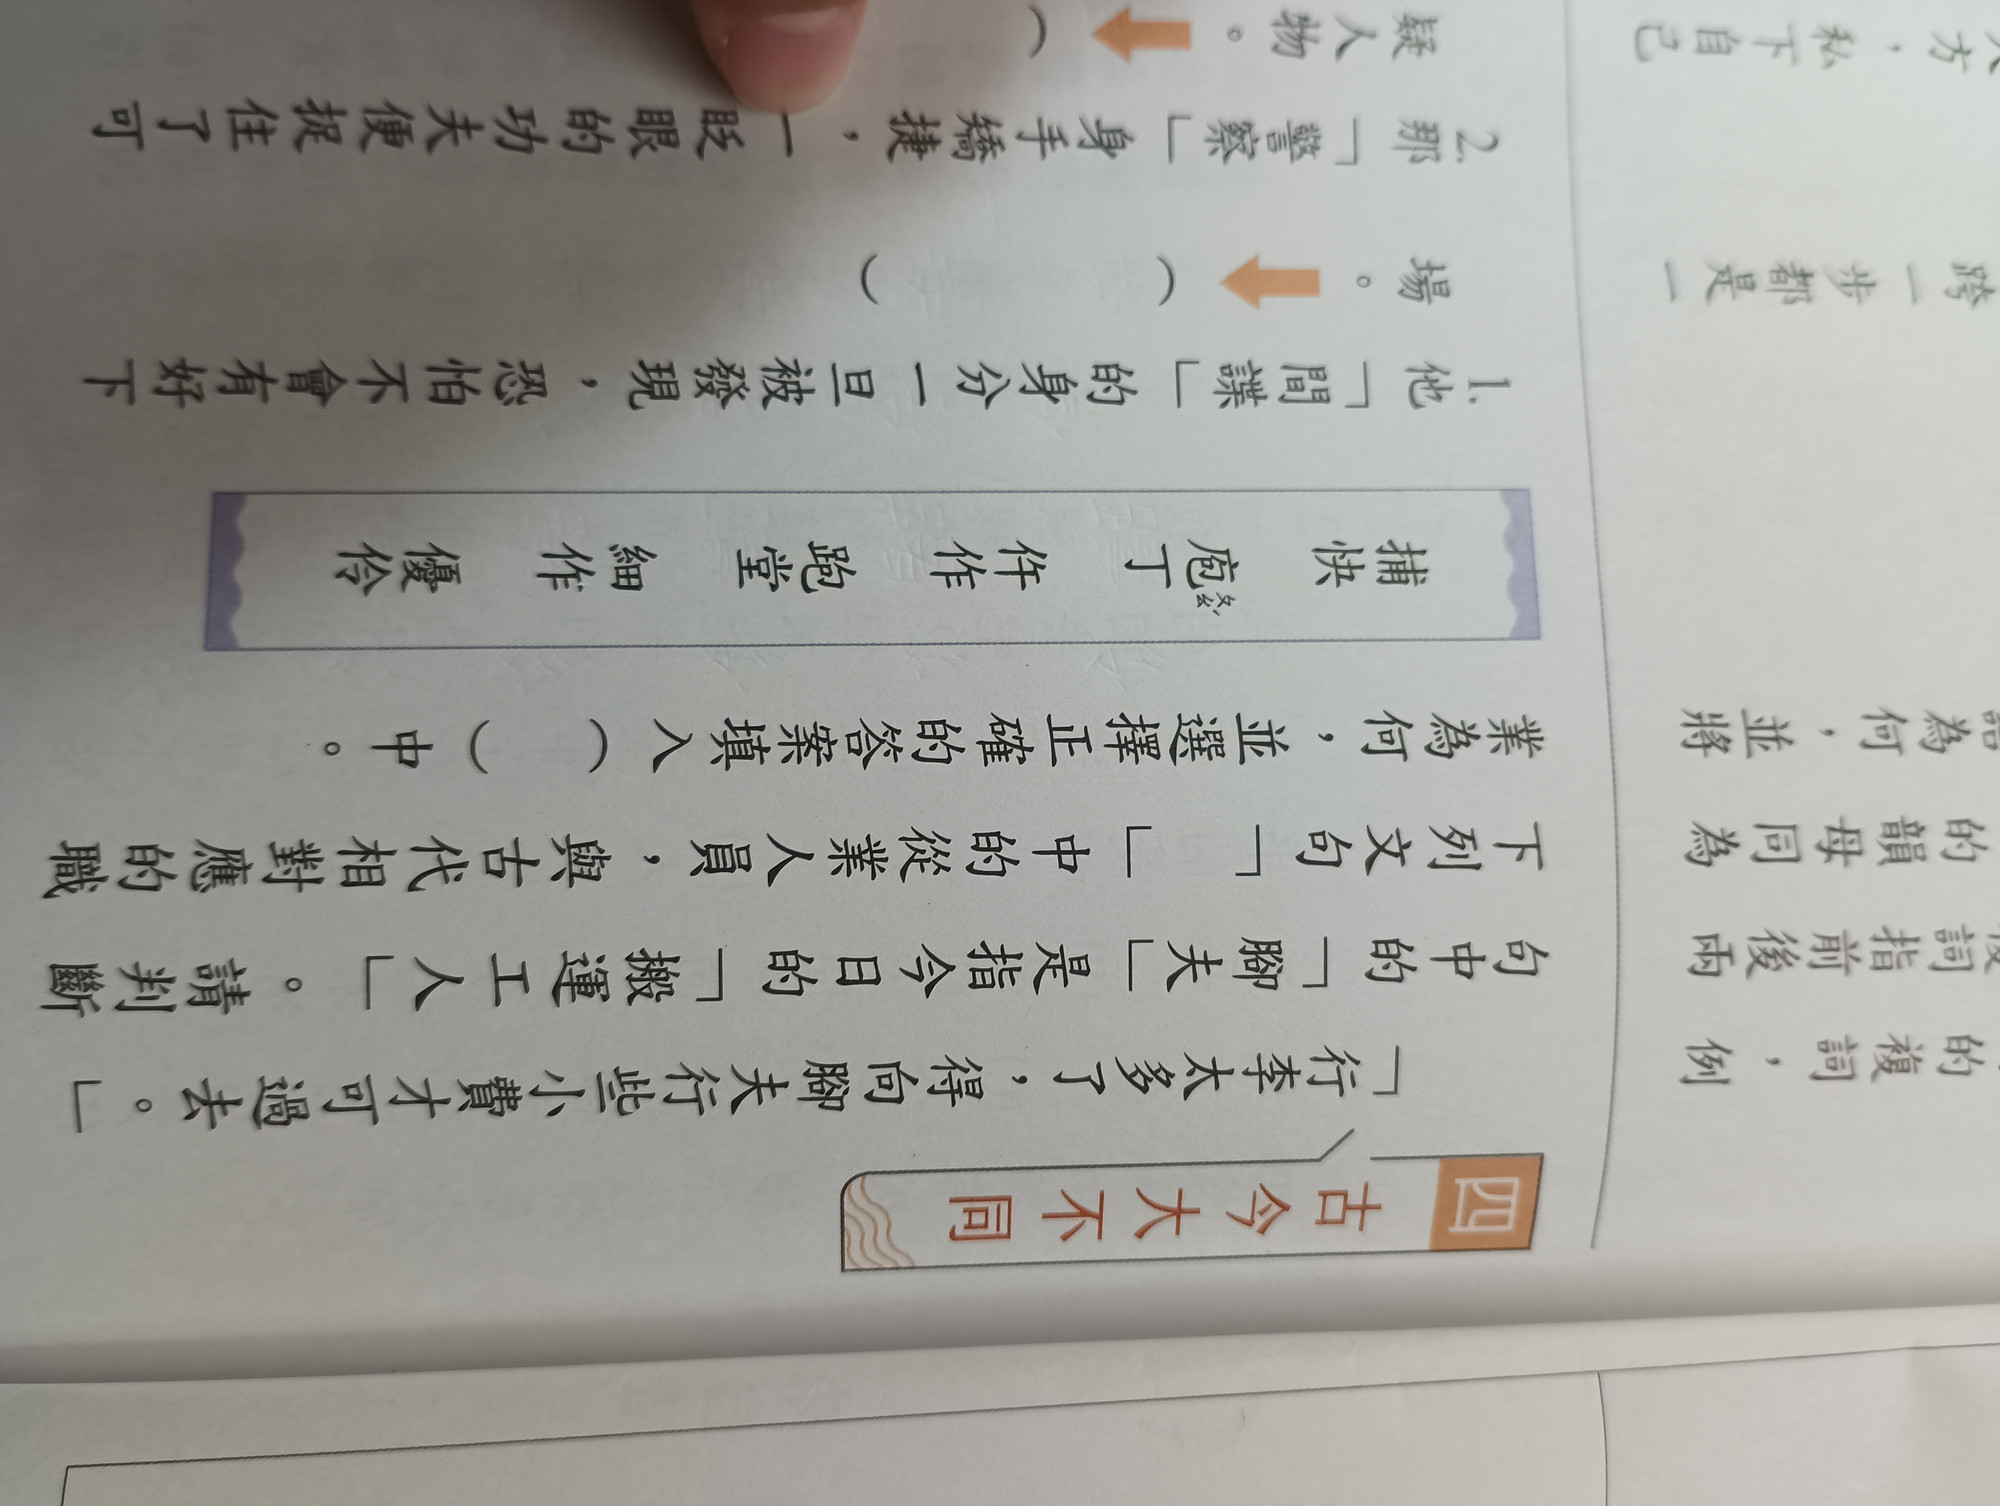 的複詞，例
詞指前後兩
的韻母同為
為何，並將
跨一步都是一
方，私下自己
四 古今大不同
「行李太多了，得向腳夫行些小費才可過去。」
句中的「腳夫」是指今日的「搬運工人」。請判斷
下列文句「　」中的從業人員，與古代相對應的職
業為何，並選擇正確的答案填入（　）中。
捕快 庖ㄆㄠˊ丁 仵作 跑堂 細作 優伶
1. 他「間諜」的身分一旦被發現，恐怕不會有好下
場。（　　　　）
2. 那「警察」身手矯捷，一眨眼的功夫便捉住了可
疑人物。（